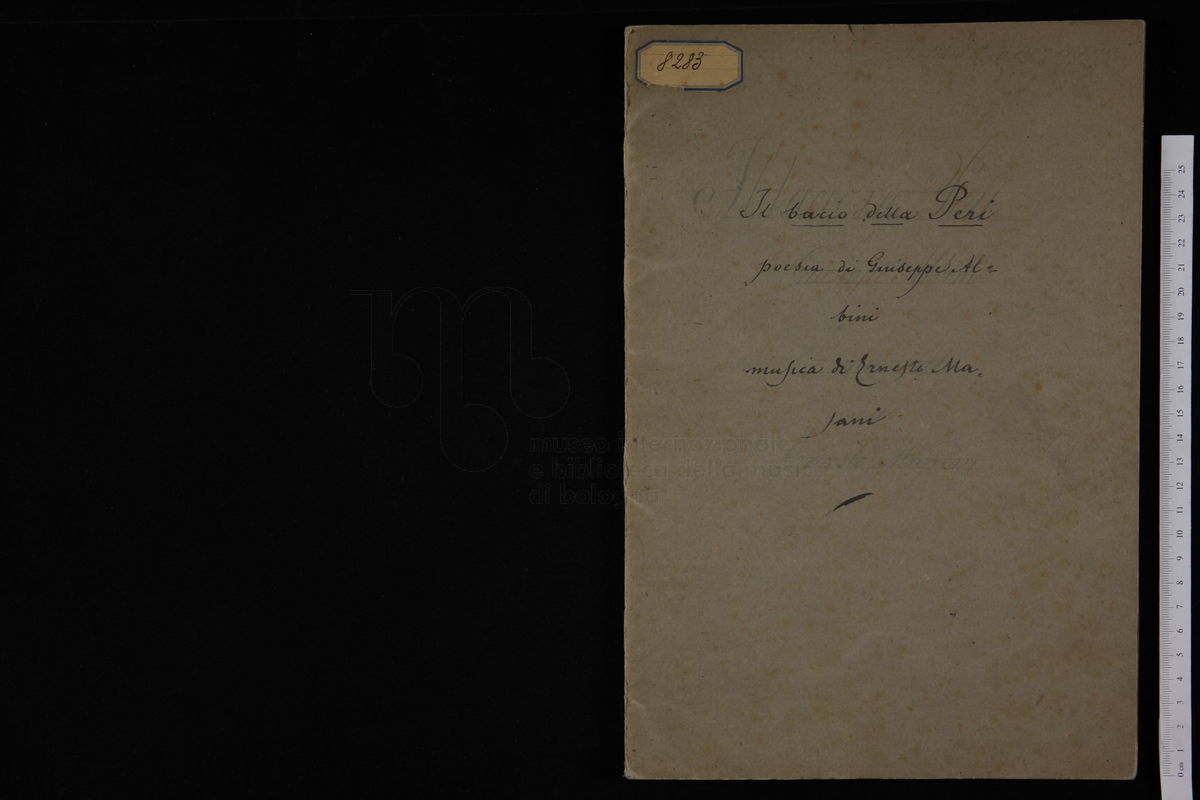 8283
Il bacio della Peri
poesia di Giuseppe Al=
bini
musica di Ernesto Ma=
sani
museo internazionale
e biblioteca della musica
di bologna
25
24
23
22
21
20
19
18
17
16
15
14
13
12
11
10
9
8
7
6
5
4
3
2
1
0 cm